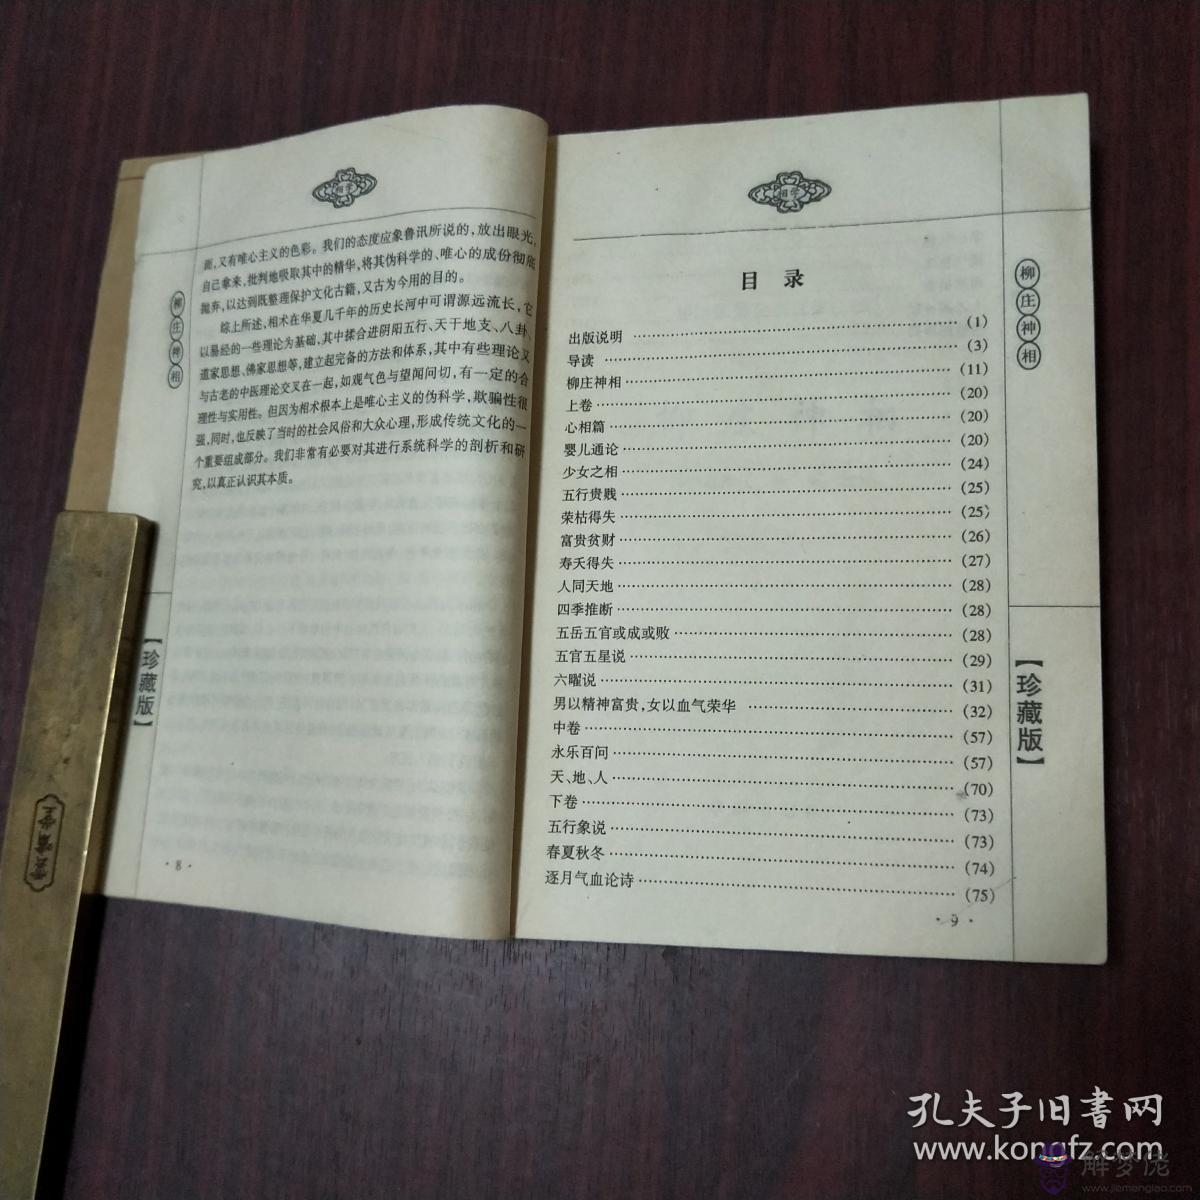 相学
面,又有唯心主义的色彩。我们的态度应象鲁讯所说的,放出眼光,
自己拿来,批判地吸取其中的精华,将其伪科学的、唯心的成份彻底
抛弃,以达到既整理保护文化古籍,又古为今用的目的。
综上所述,相术在华夏几千年的历史长河中可谓源远流长,它
以易经的一些理论为基础,其中揉合进阴阳五行、天干地支、八卦、
道家思想、佛家思想等,建立起完备的方法和体系,其中有些理论又
与古老的中医理论交叉在一起,如观气色与望闻问切,有一定的合
理性与实用性。但因为相术根本上是唯心主义的伪科学,欺骗性很
强,同时,也反映了当时的社会风俗和大众心理,形成传统文化的一
个重要组成部分。我们非常有必要对其进行系统科学的剖析和研
究,以真正认识其本质。
柳庄神相
【珍藏版】
·8·
相学
目录
出版说明 ……………………………………(1)
导读 ……………………………………(3)
柳庄神相……………………………………(11)
上卷……………………………………(20)
心相篇……………………………………(20)
婴儿通论……………………………………(20)
少女之相……………………………………(24)
五行贵贱……………………………………(25)
荣枯得失……………………………………(25)
富贵贫财……………………………………(26)
寿夭得失……………………………………(27)
人同天地……………………………………(28)
四季推断……………………………………(28)
五岳五官或成或败……………………………………(28)
五官五星说……………………………………(29)
六曜说……………………………………(31)
男以精神富贵,女以血气荣华 ……………………………………(32)
中卷……………………………………(57)
永乐百问……………………………………(57)
天、地、人……………………………………(70)
下卷……………………………………(73)
五行象说……………………………………(73)
春夏秋冬……………………………………(74)
逐月气血论诗……………………………………(75)
·9·
柳庄神相
【珍藏版】
孔夫子旧書网
www.kongfz.com
解梦佬
www.jiemenglao.com